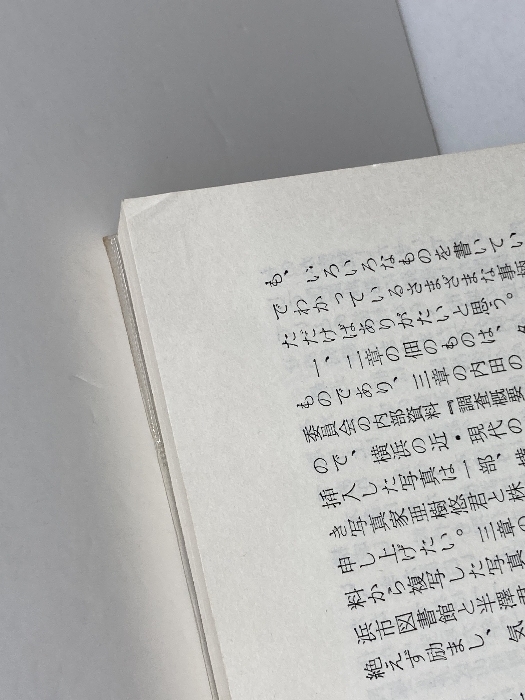 も、いろいろなものを書いてい
でわかっているさまざまな事
ただけばありがたいと思う。
一、二章の佃のものは、
ものであり、三章の内田の
委員会の内部資料『調査概要
ので、横浜の近・現代の
挿入した写真は一部、
き写真家亜樹悠君と株
申し上げたい。三章の
料から複写した写真
浜市図書館と半澤
絶えず励まし、気